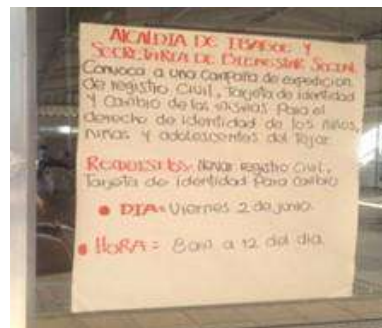 ALCALDIA DE IBAGUE Y
SECRETARIA DE BIENESTAR SOCIAL
Convoca a una campaña de expedición
de registro civil, Tarjeta de identidad
y cambio de las mismas para el
derecho de identidad de los niños,
niñas y adolescentes del Tejar.
REQUISITOS: llevar registro civil,
Tarjeta de identidad para cambio
DIA: Viernes 2 de junio.
HORA: 8am a 12 del dia.